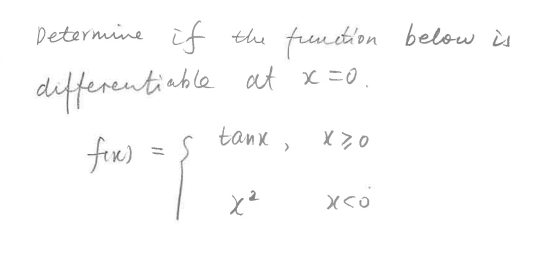 Determine if the function below is
differentiable at x=0.
f(x) = { tanx , x⩾0
x² x<0